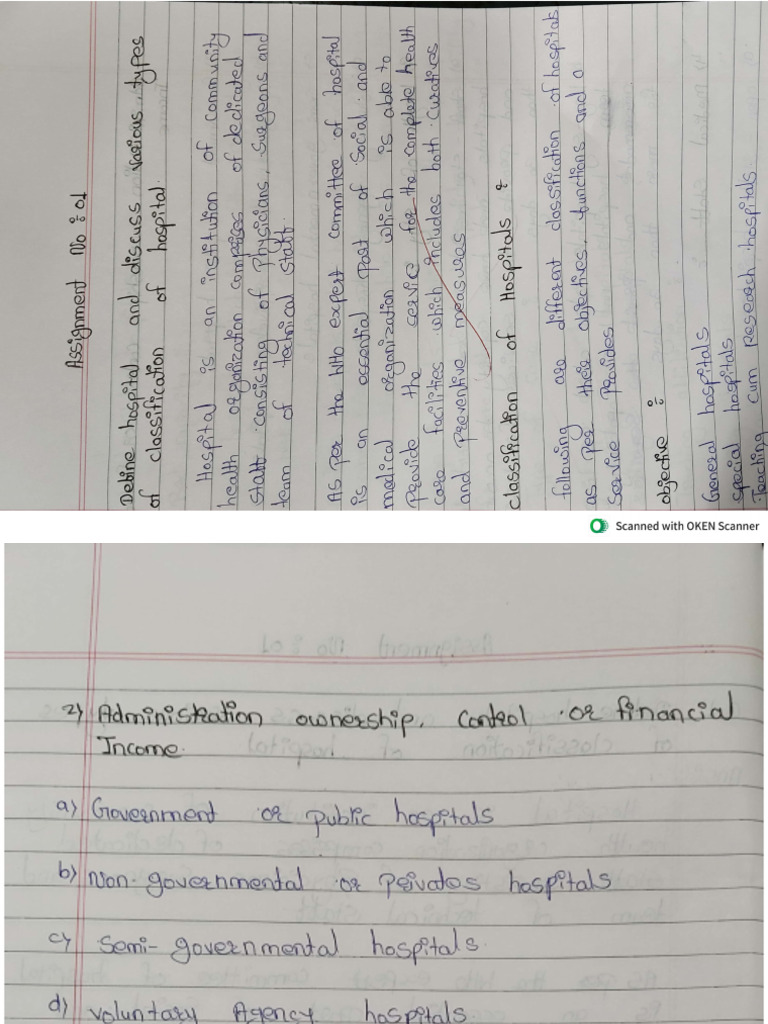 Assignment No : 01
Define hospital and discuss various types
of classification of hospital.
Hospital is an institution of community
health organization comprises of dedicated
staff consisting of Physicians, Surgeons and
team of technical staff.
As per the WHO expert committee of hospital
is an essential part of social and
medical organization which is able to
Provide the service for the complete health
care facilities which includes both curatives
and preventive measures
classification of Hospitals :
following are different classification of hospitals
as per their objectives, functions and a
Service Provides
objective :
General hospitals
special hospitals
Teaching cum Research hospitals.
Scanned with OKEN Scanner
2) Administration ownership, Control or financial
Income.
a) Government or public hospitals
b) Non-governmental or Privates hospitals
c) Semi-governmental hospitals.
d) voluntary Agency hospitals